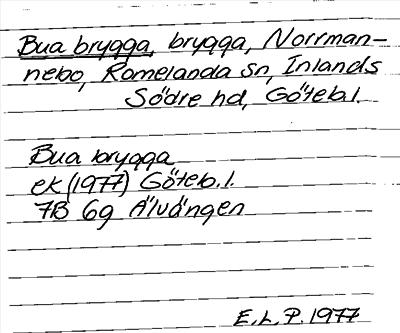 Bua brygga, brygga, Norrman-
nebo, Romelanda sn, Inlands
Södre hd, Göteb.l.
Bua brygga
ek (1977) Göteb.l.
7B 6g Älvängen
E.L.P. 1977